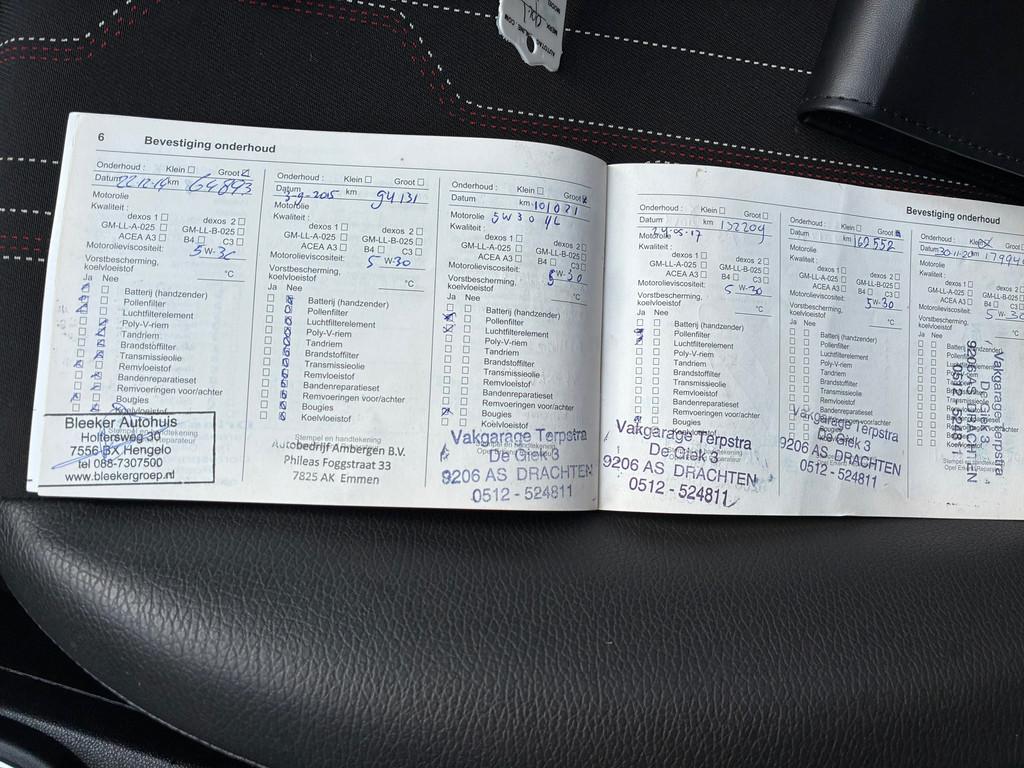 AUTOTAALONLINE.COM
MERK
6 Bevestiging onderhoud
Onderhoud : Klein Groot
Datum 22-12-14 km 64893
Motorolie
Kwaliteit :
dexos 1 dexos 2
GM-LL-A-025 GM-LL-B-025
ACEA A3 B4 C3
Motorolieviscositeit: 5W-30
Vorstbescherming,
koelvloeistof °C
Ja Nee
Batterij (handzender)
Pollenfilter
Luchtfilterelement
Poly-V-riem
Tandriem
Brandstoffilter
Transmissieolie
Remvloeistof
Bandenreparatieset
Remvoeringen voor/achter
Bougies
Koelvloeistof
Bleeker Autohuis
Holtersweg 30
7556 BX Hengelo
tel 088-7307500
www.bleekergroep.nl
Onderhoud : Klein Groot
Datum 3-9-2015 km 94131
Motorolie
Kwaliteit :
dexos 1 dexos 2
GM-LL-A-025 GM-LL-B-025
ACEA A3 B4 C3
Motorolieviscositeit: 5W-30
Vorstbescherming,
koelvloeistof °C
Ja Nee
Batterij (handzender)
Pollenfilter
Luchtfilterelement
Poly-V-riem
Tandriem
Brandstoffilter
Transmissieolie
Remvloeistof
Bandenreparatieset
Remvoeringen voor/achter
Bougies
Koelvloeistof
Stempel en handtekening
Autobedrijf Ambergen B.V.
Phileas Foggstraat 33
7825 AK Emmen
Onderhoud : Klein Groot
Datum km 101021
Motorolie 5W30
Kwaliteit :
dexos 1 dexos 2
GM-LL-A-025 GM-LL-B-025
ACEA A3 B4 C3
Motorolieviscositeit: 5W-30
Vorstbescherming,
koelvloeistof °C
Ja Nee
Batterij (handzender)
Pollenfilter
Luchtfilterelement
Poly-V-riem
Tandriem
Brandstoffilter
Transmissieolie
Remvloeistof
Bandenreparatieset
Remvoeringen voor/achter
Bougies
Koelvloeistof
Vakgarage Terpstra
De Giek 3
9206 AS DRACHTEN
0512 - 524811
Bevestiging onderhoud
Onderhoud : Klein Groot
Datum 24-05-17 km 132209
Motorolie
Kwaliteit :
dexos 1 dexos 2
GM-LL-A-025 GM-LL-B-025
ACEA A3 B4 C3
Motorolieviscositeit: 5W-30
Vorstbescherming,
koelvloeistof °C
Ja Nee
Batterij (handzender)
Pollenfilter
Luchtfilterelement
Poly-V-riem
Tandriem
Brandstoffilter
Transmissieolie
Remvloeistof
Bandenreparatieset
Remvoeringen voor/achter
Bougies
Vakgarage Terpstra
De Giek 3
9206 AS DRACHTEN
0512 - 524811
Onderhoud : Klein Groot
Datum km 162552
Motorolie
Kwaliteit :
dexos 1 dexos 2
GM-LL-A-025 GM-LL-B-025
ACEA A3 B4 C3
Motorolieviscositeit: 5W-30
Vorstbescherming,
koelvloeistof °C
Ja Nee
Batterij (handzender)
Pollenfilter
Luchtfilterelement
Poly-V-riem
Tandriem
Brandstoffilter
Transmissieolie
Remvloeistof
Bandenreparatieset
Remvoeringen voor/achter
Bougies
Vakgarage Terpstra
De Giek 3
9206 AS DRACHTEN
0512 - 524811
Onderhoud : Klein
Datum 30-11-20 km
Motorolie
Kwaliteit :
dexos 1
GM-LL-A-025
ACEA A3
Motorolieviscositeit:
Vorstbescherming,
koelvloeistof
Ja Nee
Vakgarage Terpstra
De Giek 3
9206 AS DRACHTEN
0512 - 524811